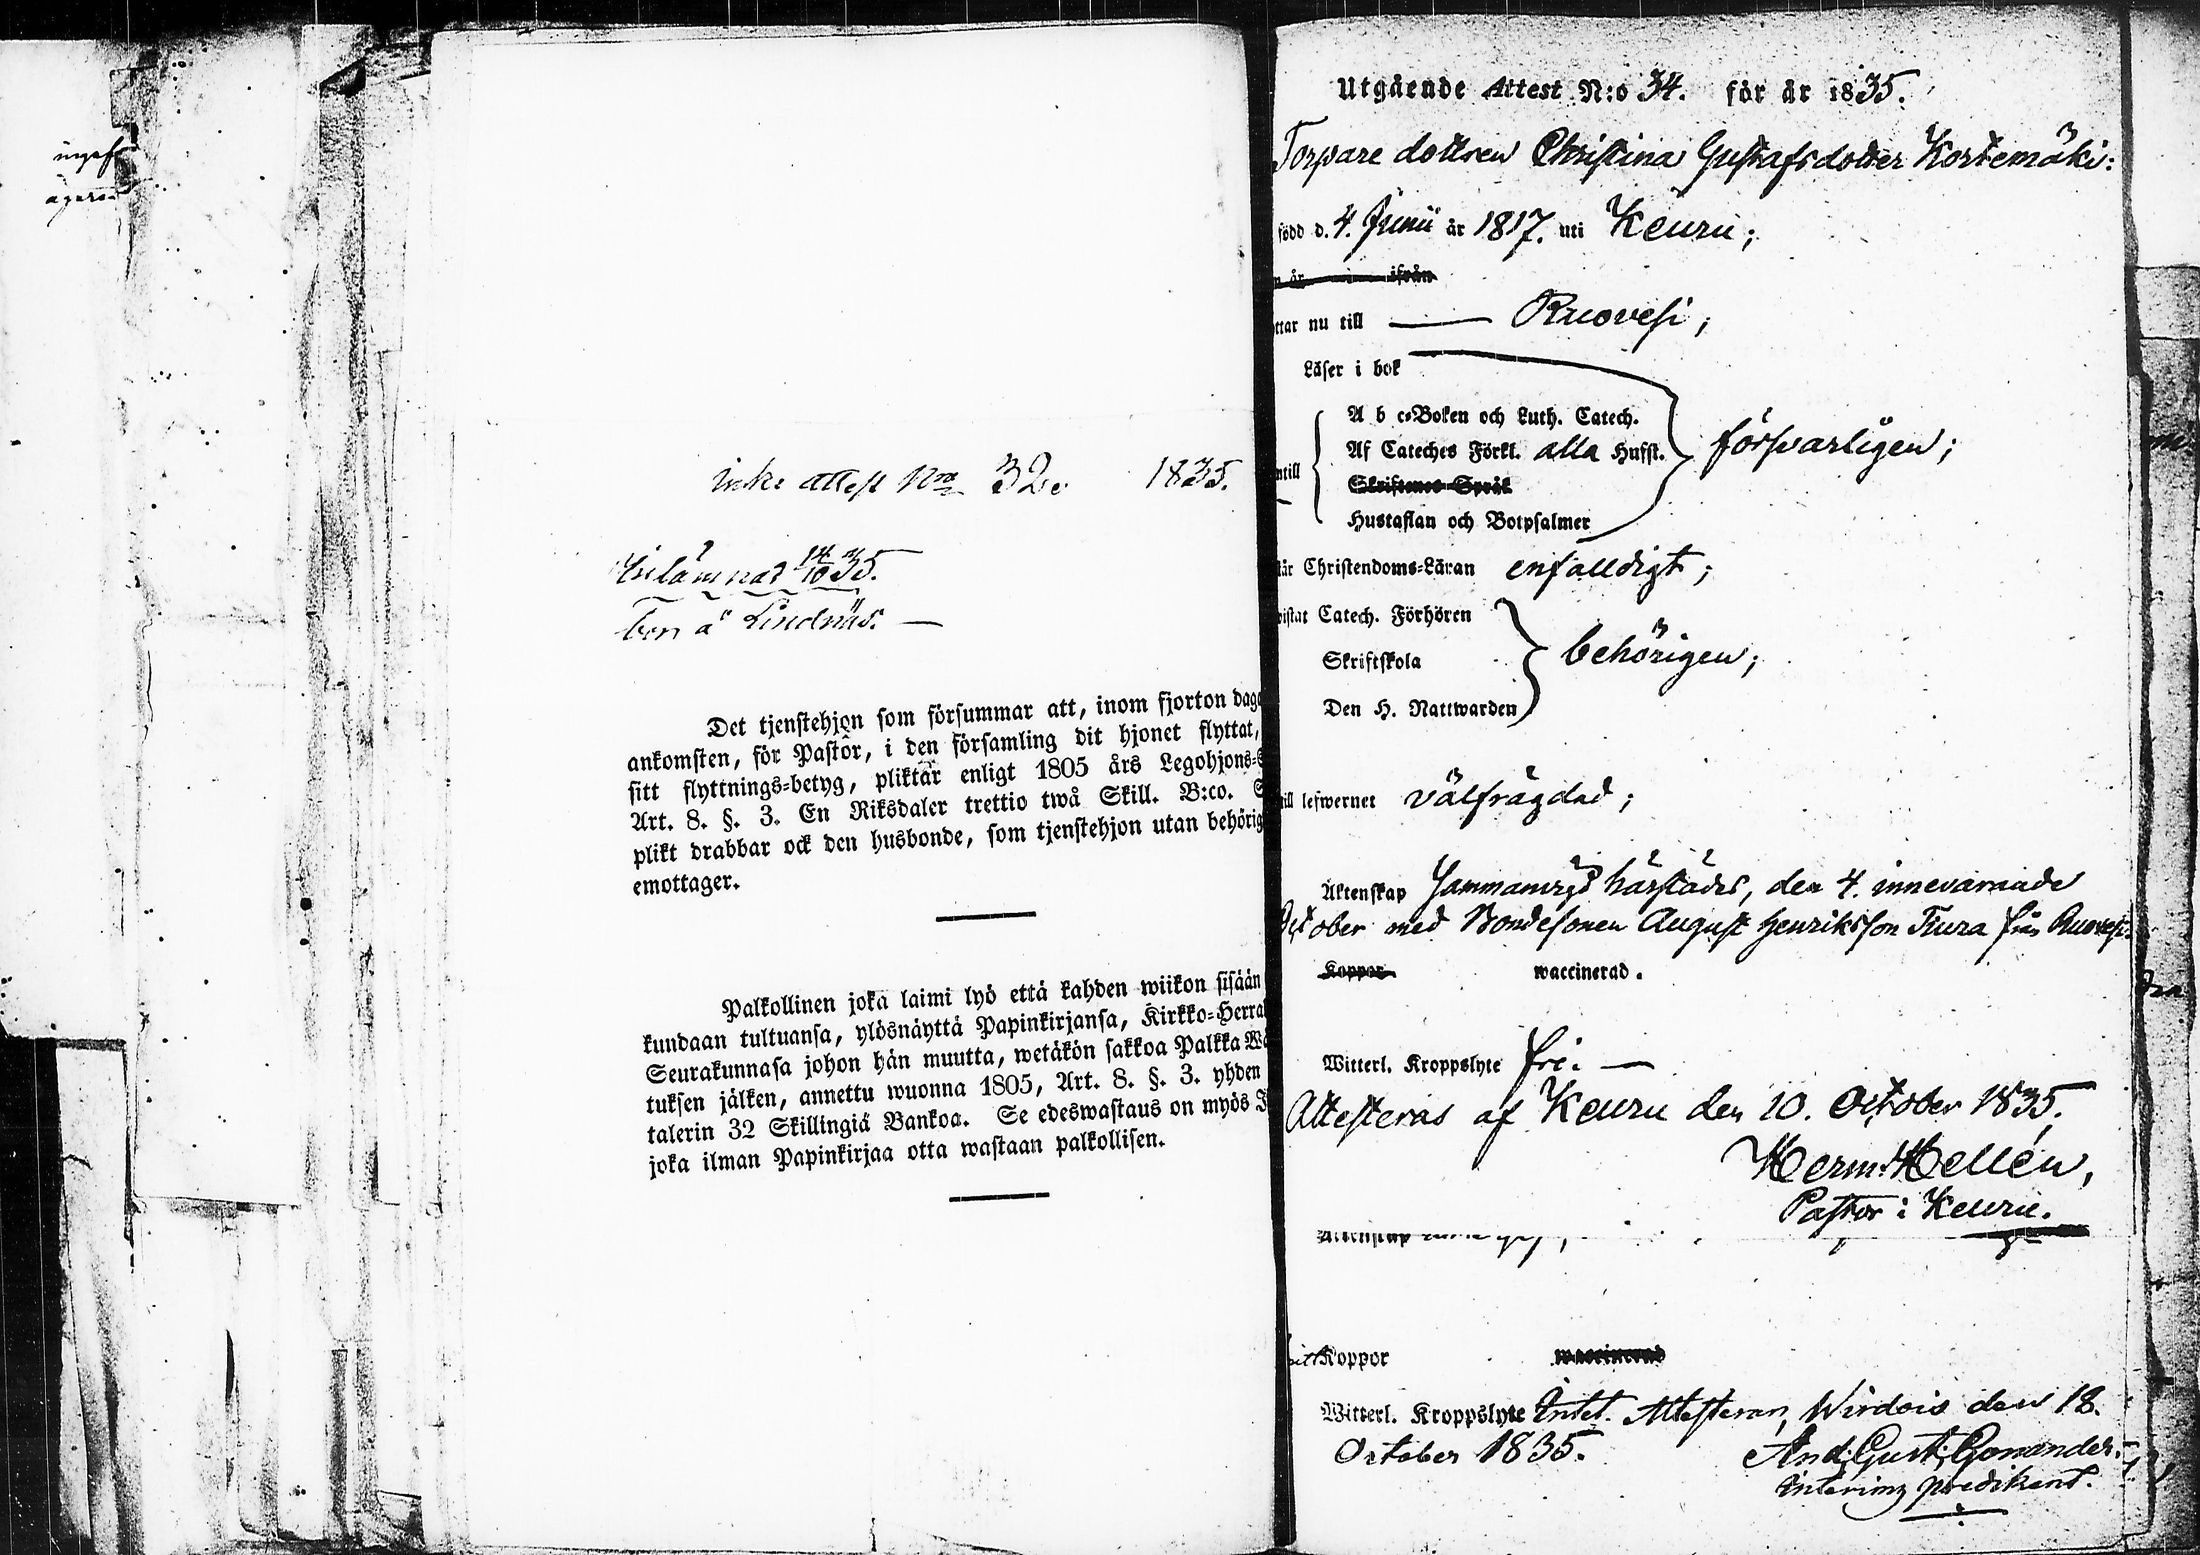 ingaf
Inko attest Nro 32. 1835.
Inlämnad 14/10 35.
bor å Lindnäs. —
Det tjenstehjon som försummar att, inom fjorton dag
ankomsten, för Pastor, i den församling dit hjonet flyttat,
sitt flyttnings-betyg, pliktar enligt 1805 års Legohjons-
Art. 8. §. 3. En Riksdaler trettio twå Skill. B:co.
plikt drabbar ock den husbonde, som tjenstehjon utan behörig
emottager.
Palkollinen joka laimi lyö että kahden wiikon sisään
kundaan tultuansa, ylösnäyttä Papinkirjansa, Kirkko-Herra
Seurakunnasa johon hän muutta, wetäkön sakkoa Palkka Wä
tuksen jälken, annettu wuonna 1805, Art. 8. §. 3. yhden
talerin 32 Skillingiä Bankoa. Se edeswastaus on myös I
joka ilman Papinkirjaa otta wastaan palkollisen.
Utgående Attest N:o 34. för år 1835.
Torpare dottren Christina Gustafsdotter Kortemäki:
född d. 4. Junii år 1817. uti Keuru;
n år ifrån
ttar nu till — Ruovesi;
Läser i bok
A b c-Boken och Luth. Catech.
Af Cateches Förkl. alla Hufst. försvarligen;
ntill
Skriftenes Språk
Hustaflan och Botpsalmer
tår Christendoms-Läran enfalldigt;
vistat Catech. Förhören
Skriftskola behörigen;
Den H. Nattwarden
till lefwernet välfrägdad;
Äktenskap Sammanvigd härstädes, den 4. innevarande
October med Bondesonen August Henriksson Tiura från Ruovesi.
Koppor waccinerad.
Witterl. Kroppslyte fri. —
Attesteras af Keuru den 10. October 1835.
Herm: Hellén,
Pastor i Keuru.
Koppor waccinerad
Witterl. Kroppslyte Intet. Attesterar, Wirdois den 18.
October 1835. And: Gust: Gonander.
Interims predikant.